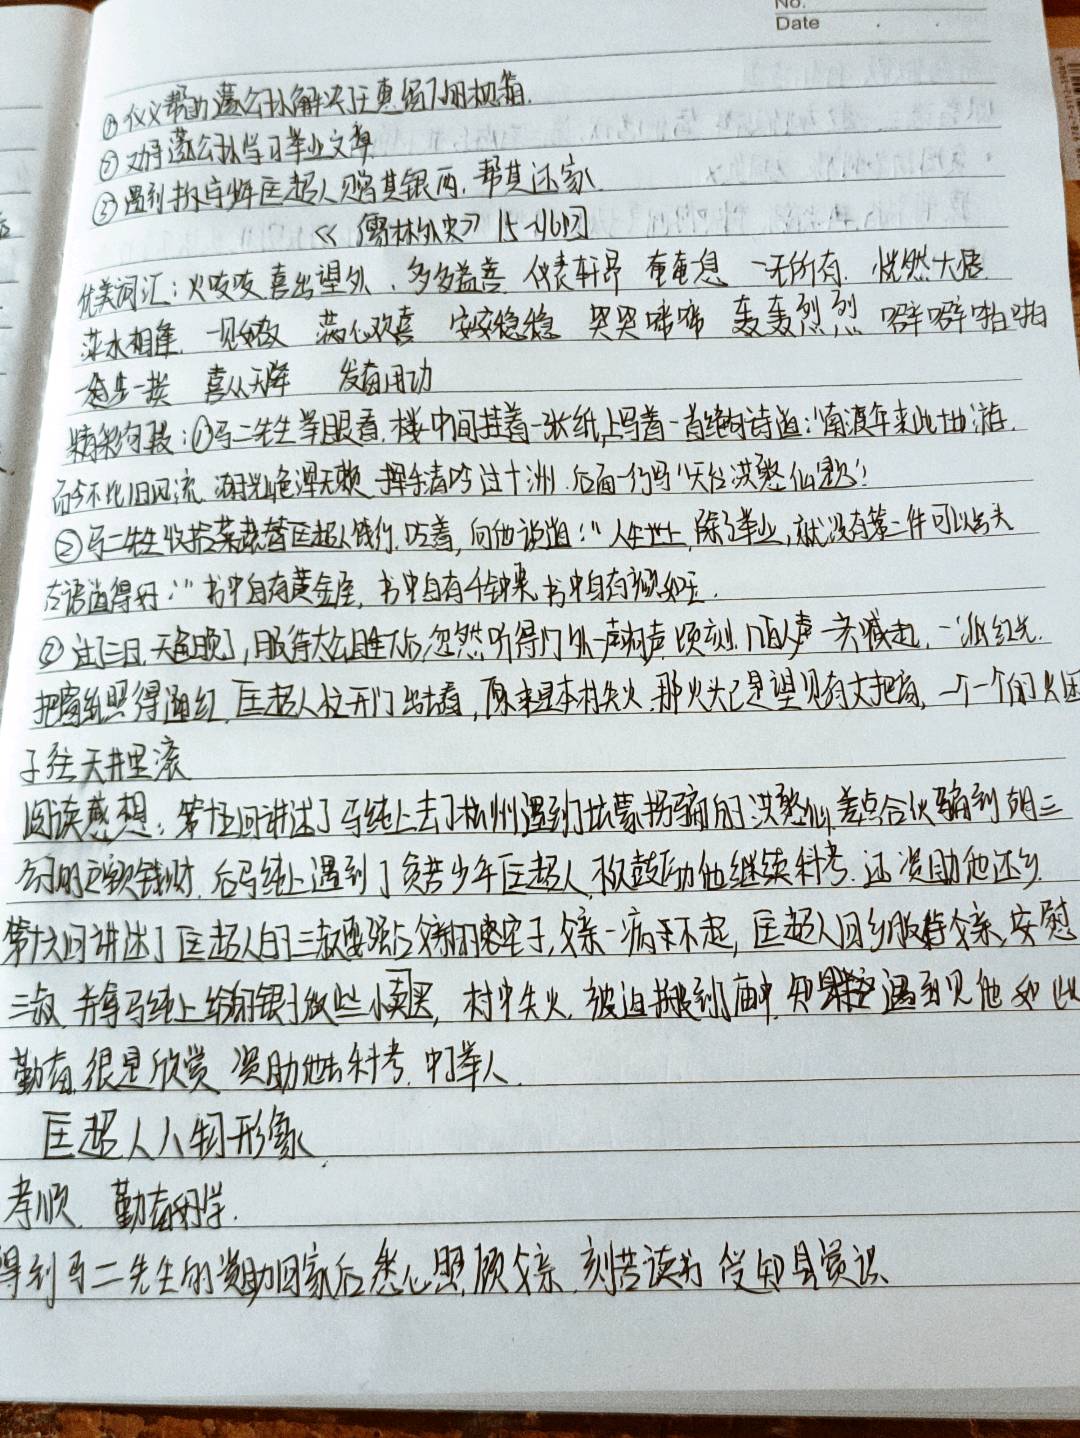 No.
Date
①仗义帮助蘧公孙解决王惠留下的枕箱.
②劝导蘧公孙学习举业文章
③遇到拆字少年匡超人赠其银两,帮其还家.
《儒林外史》15-16回
优美词汇:火吱吱 喜出望外、多多益善 仪表轩昂 奄奄息 一无所有. 恍然大悟
萍水相逢. 一见如故 满心欢喜 安安稳稳 哭哭啼啼 轰轰烈烈 噼噼啪啪
喜从天降 发奋用功
精彩句段:①马二先生举眼看,楼中间挂着一张纸,上写着一首绝句诗道:“南渡年来此地游.
而今不比旧风流.湖光山色浑无赖 挥手清吟过十洲.后面一行写“天台洪憨仙题”!
②马二先生收拾菜蔬替匡超人饯行.吃着,向他说道:“人生世上,除了举业,就没有第二件可以出头
古语道得好:“书中自有黄金屋,书中自有千钟粟,书中自有颜如玉.
③过了三日,天色晚了,服侍太公睡下后,忽然听得门外一声响声,顷刻,几百人声一齐喊起,一派红光.
把窗纸照得通红,匡超人拉开门出去看,原来是本村失火,那火头已是望见有丈把高,一个一个的火团
子往天井里滚
阅读感想:第十五回讲述了马纯上去了杭州遇到了坑蒙拐骗的洪憨仙,差点合伙骗到胡三
公子的钱财.后马纯上遇到了贫苦少年匡超人,不仅鼓励他继续科考.还资助他还乡.
第十六回讲述了匡超人的三叔要强占父亲的宅子,父亲一病不起,匡超人回乡服侍父亲,安慰
三叔.并拿马纯上给的银子做些小买卖,村中失火.被迫搬到庙中,知县遇到见他如此
勤奋.很是欣赏 资助他去科考.中了举人.
匡超人人物形象
孝顺. 勤奋好学.
得到马二先生的资助回家后悉心照顾父亲.刻苦读书 受知县赏识